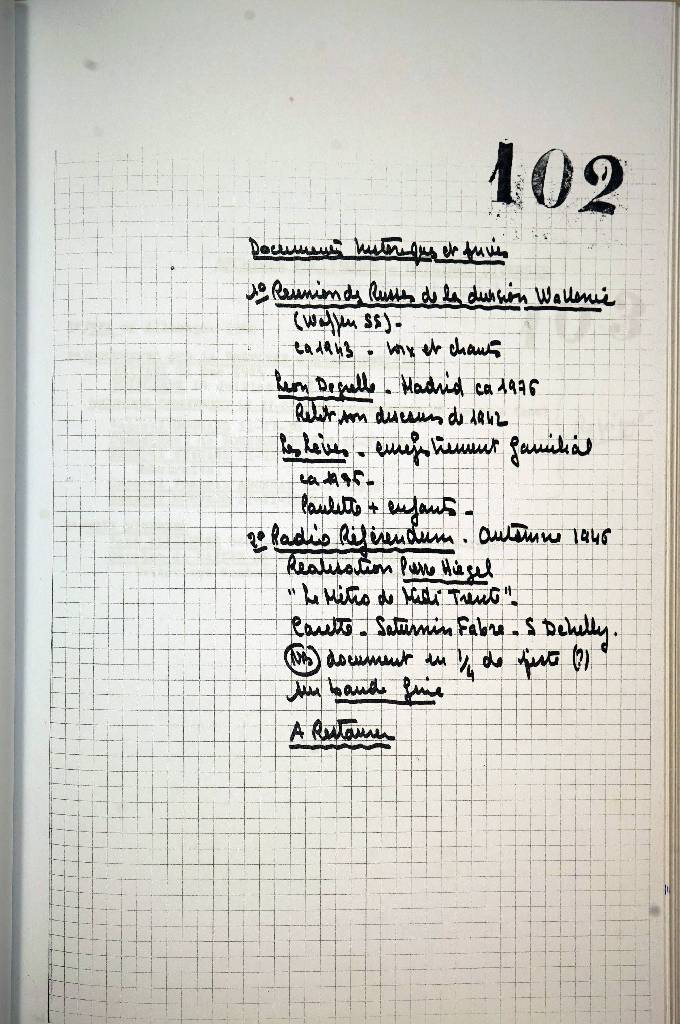 102
Documents historiques et privés
1º Réunion de Russes de la division Wallonie
(Waffen SS) -
ca 1943 - voix et chants
Léon Degrelle - Madrid ca 1976
Relit son discours de 1942
Les Lèves - enregistrement familial
ca 1975 -
Paulette + enfants -
2º Radio Référendum. Automne 1946
Réalisation Pierre Hiegel
"Le Métro de Midi Trente".
Carette - Saturnin Fabre - S Dehelly.
NB document en 1/4 de piste (?)
sur bande fine
A Restaurer